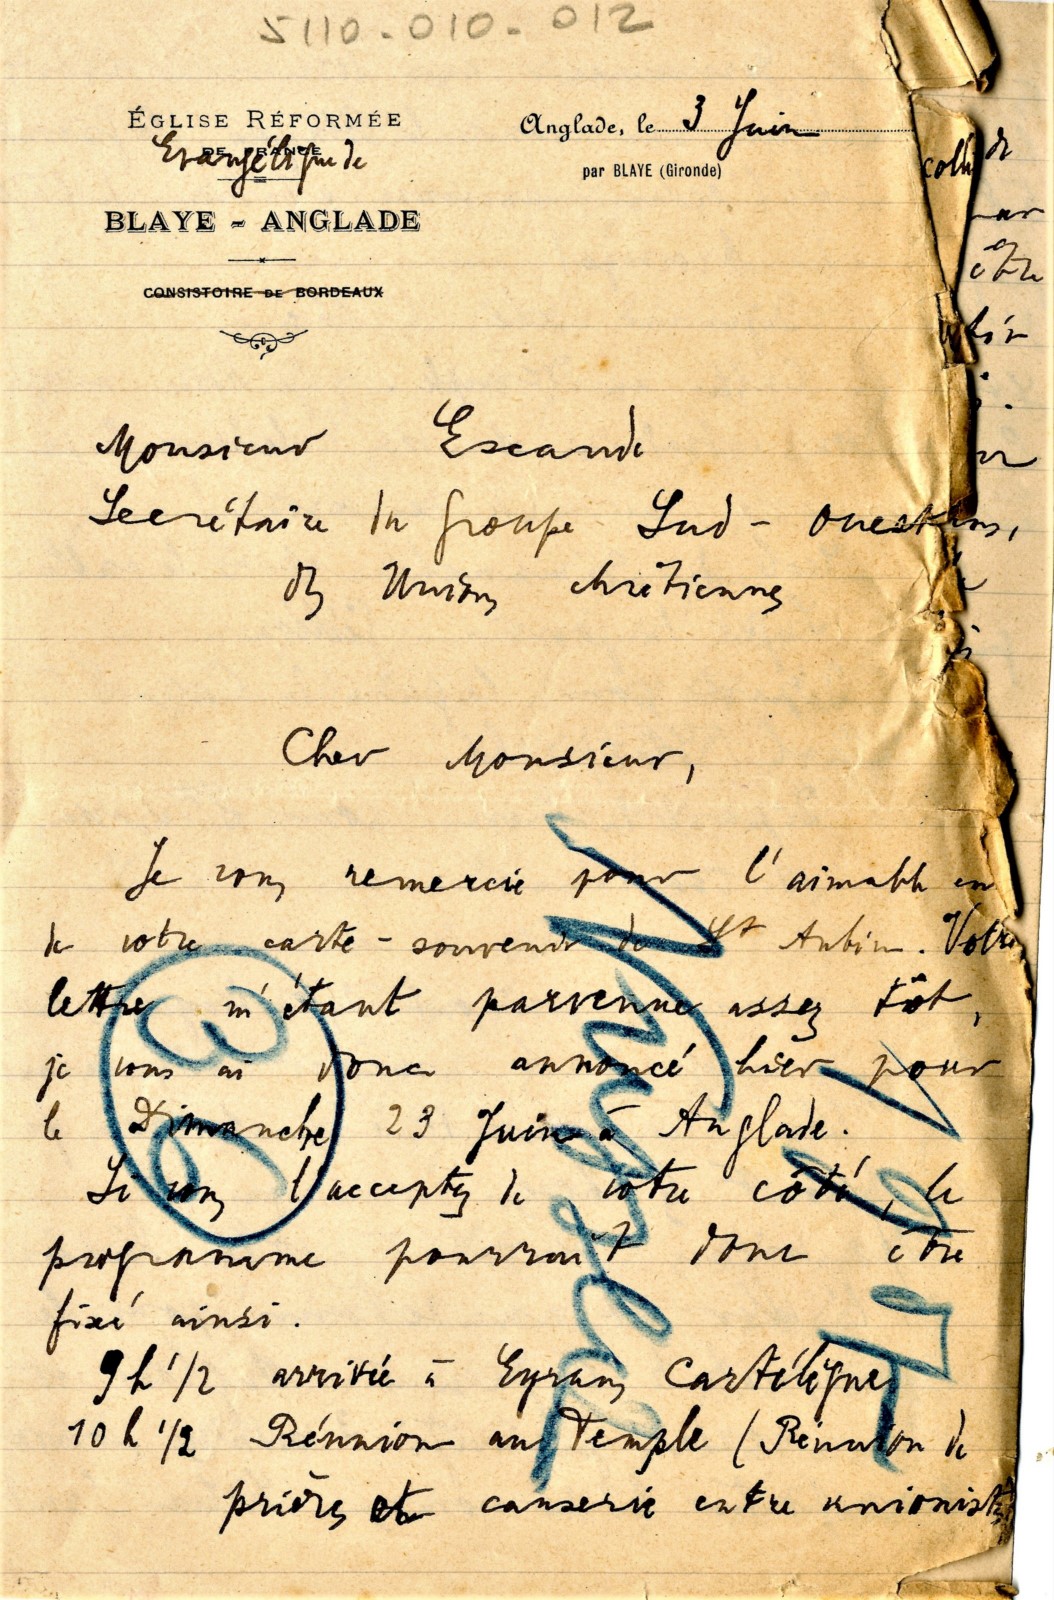 5110-010-012
ÉGLISE RÉFORMÉE
Evangélique de
DE FRANCE
BLAYE - ANGLADE
CONSISTOIRE DE BORDEAUX
Anglade, le 3 Juin
par BLAYE (Gironde)
Monsieur Escande
Secrétaire du groupe Sud-ouest
des Unions chrétiennes
Cher Monsieur,
Je vous remercie pour l'aimable en
de votre carte-souvenir de St Aubin. Votre
lettre m'étant parvenue assez tôt,
je vous ai donc annoncé hier pour
le Dimanche 23 Juin à Anglade.
Si vous l'acceptez de votre côté, le
programme pourrait donc être
fixé ainsi.
9h 1/2 arrivée à Eyrans Cartelègue
10h 1/2 Réunion au Temple (Réunion de
prières et causerie entre unionistes